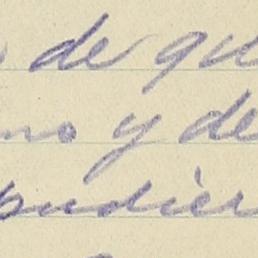 de que
no y de
pudier